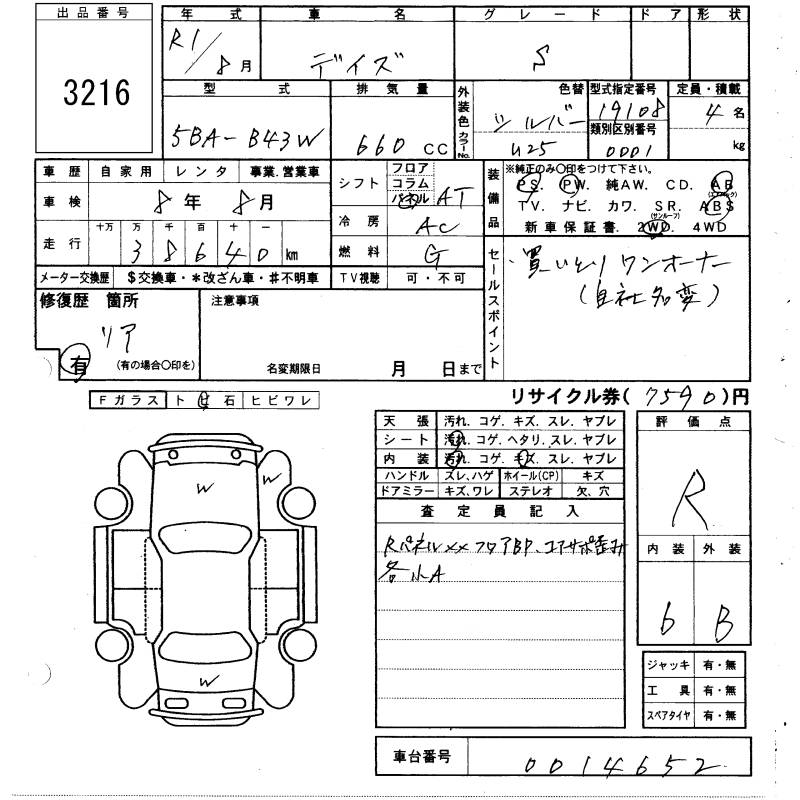 出品番号
3216
年式 車名 グレード ドア 形状
R1/8月 デイズ S
型式 排気量 外装色 カラーNo. 色替 型式指定番号 定員・積載
5BA-B43W 660 CC シルバー 19108 4名
U25 類別区別番号 0001 kg
車歴 自家用 レンタ 事業.営業車
車検 8年 8月
走行 十万 万 千 百 十 一
38640 km
メーター交換歴 $交換車・*改ざん車・#不明車
シフト フロア コラム パネル AT
冷房 AC
燃料 G
TV視聴 可・不可
装備品 ※純正のみ〇印をつけて下さい。
PS. PW. 純AW. CD. AB(エアバック)
TV. ナビ. カワ. SR.(サンルーフ) ABS
新車保証書. 2WD. 4WD
セールスポイント
買いとり ワンオーナー
(自社名変)
修復歴 箇所 リア
有 (有の場合〇印を)
注意事項
名変期限日 月 日まで
リサイクル券(7590)円
Fガラス トビ石 ヒビワレ
W
W
W
天張 汚れ. コゲ. キズ. スレ. ヤブレ
シート 汚れ. コゲ. ヘタリ. スレ. ヤブレ
内装 汚れ. コゲ. キズ. スレ. ヤブレ
ハンドル スレ, ハゲ ホイール(CP) キズ
ドアミラー キズ, ワレ ステレオ 欠、穴
査定員記入
Rパネル×× フロアBP、コアサポ歪み
各小A
評価点
R
内装 外装
6 B
ジャッキ 有・無
工具 有・無
スペアタイヤ 有・無
車台番号 0014652